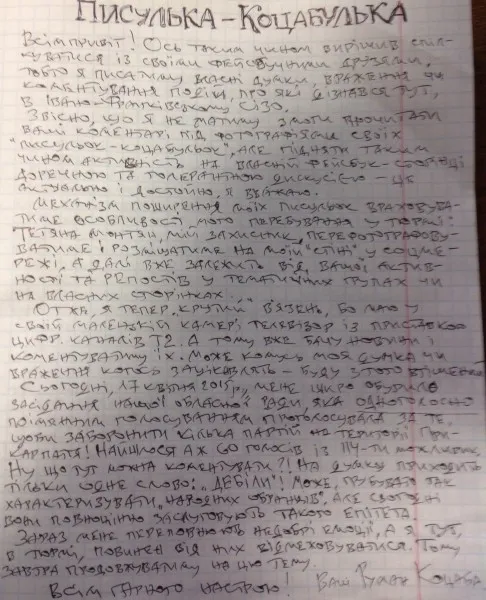 Писулька-Коцабулька
Всім привіт! Ось таким чином вирішив спіл-
куватися із своїми фейсбучними друзями,
тобто я писатиму власні думки, враження чи
коментування подій, про які дізнався тут,
в Івано-Франківському СІЗО.
Звісно, що я не матиму змоги прочитати
ваші коментарі під фотографіями своїх
"писульок-коцабульок", але підняти таким
чином активність на власній фейсбук-сторінці
доречною та толерантною дискусією - це
актуально і достойно, я вважаю.
Механізм поширення моїх писульок враховува-
тиме особливості мого перебування у тюрмі:
Тетяна Монтян, мій захисник, перефотографову-
ватиме і розміщатиме на моїй "стіні" у соцме-
режі, а далі вже залежить від вашої актив-
ності та репостів у тематичних групах чи
на власних сторінках...
Отже, я тепер "крутий" в'язень, бо маю у
своїй маленькій камері телевізор із приставкою
цифр. каналів Т2. А тому вже бачу новини і
коментуватиму їх. Може комусь моя думка чи
враження когось зацікавлять - буду з того втішений
Сьогодні, 17 квітня 2015р., мене щиро обурило
засідання нашої обласної ради, яка одноголосно
поіменним голосуванням проголосувала за те,
щоби заборонити кілька партій на території При-
карпаття! Найшлося аж 60 голосів із 114-ти можливих.
Ну що тут можна коментувати?! На думку приходить
тільки одне слово: "ДЕБІЛИ"! Може, грубувато так
характеризувати "народних обранців", але сьогодні
вони повноцінно заслуговують такого епітета.
Зараз мене переповнюють недобрі емоції, а я тут,
в тюрмі, повинен від них відмежовуватися. Тому
завтра продовжуватиму на цю тему.
Всім гарного настрою! Ваш Руслан Коцаба